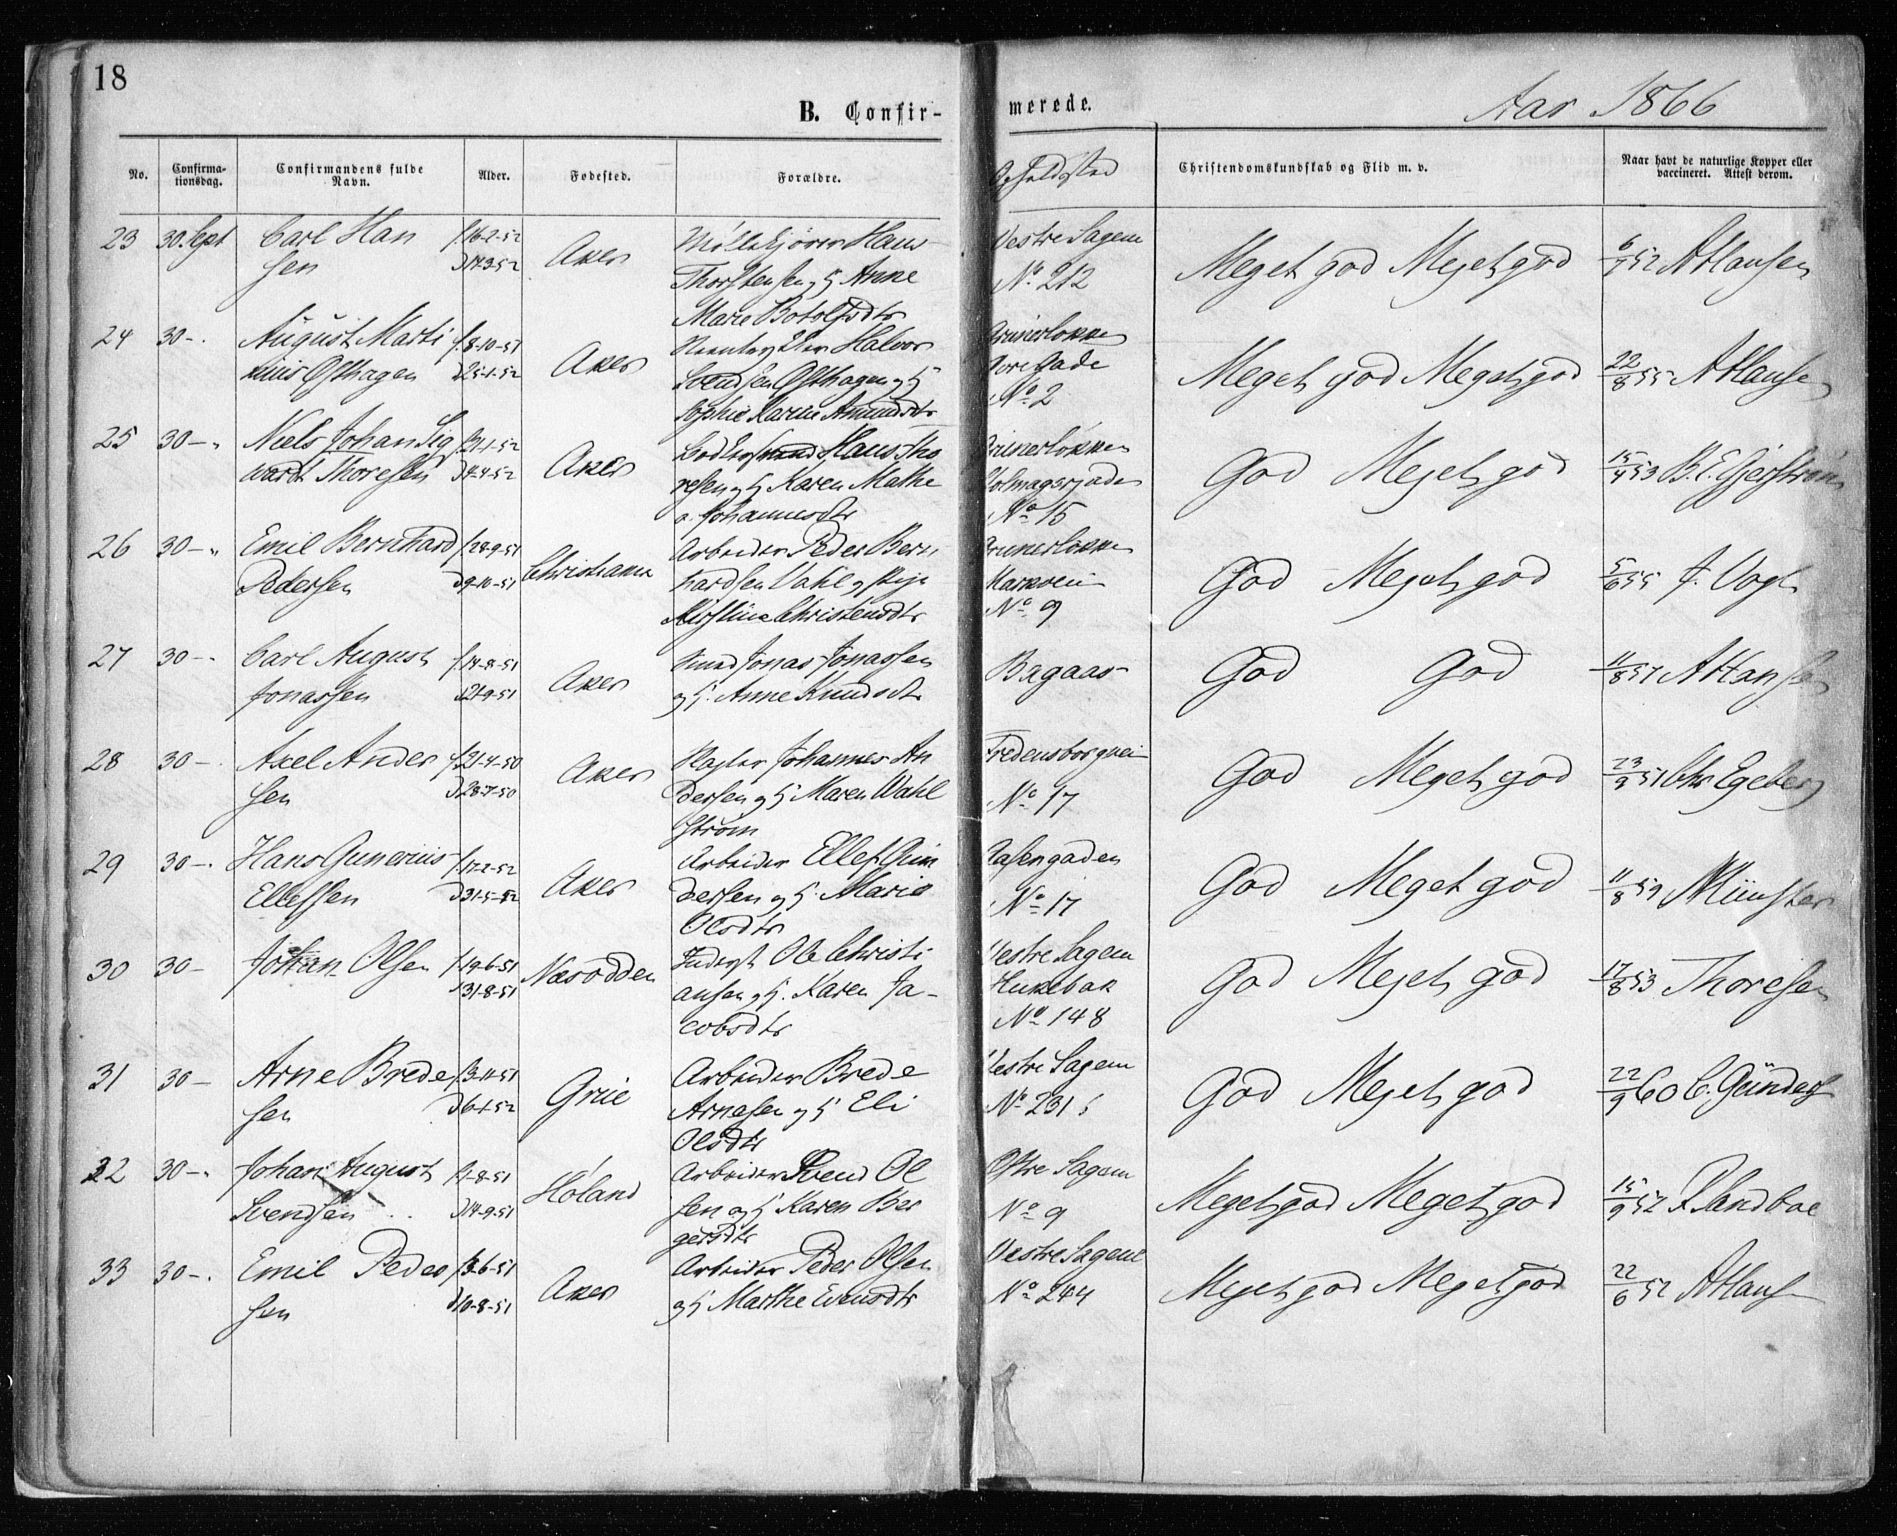 18
B. Confir-
merede.
Aar 1866
No.
Confirma-
tionsdag.
Confirmandens fulde
Navn.
Alder.
Fødested.
Forældre.
Opholdssted
Christendomskundskab og Flid m. v.
Naar havt de naturlige Kopper eller
vaccineret. Attest derom.
23 30 Sept Carl Han f. 16-2-52 Aker Hans Vestre Sagene Meget god Meget god 6/7 52 A Hansen
sen D 17-3-52 Thorstensen og H Anne No 212
Marie Botolfsdtr
24 30 - August Marti f. 8-10-51 Aker Halvor Grünerløkken Meget god Meget god 22/8 55 A Hansen
nius Østhagen D 25-1-52 Svendsen Østhagen og H Gade
Sophie Karine Amundsdtr No 2
25 30 - Niels Johan Sig f. 21-1-52 Aker Hans Tho Grünerløkken God Meget god 15/4 53
wardt Thoresen D 4-4-52 resen og H Karen Mathe
a Johannesdtr No 15
26 30 - Emil Bernhard f. 28-9-51 Christiania Arbeider Peder Bern Grünerløkken God Meget god 5/6 55 J. Vogt
Pedersen D 9-10-51 hardsen Dahl og Pige Markveien
Christensdtr No 9
27 30 - Carl August f. 14-8-51 Aker Jonas Jonassen Bagaas God God 11/8 57 A Hansen
Jonassen D 21-9-51 og H. Anne Knudsdtr
28 30 - Axel Ander f. 21-4-50 Aker Johannes An Fredensborgvei God Meget god 23/9 51 Chr Egeberg
sen D 28-7-50 dersen og H Maren Wahl No 17
strøm
29 30 - Hans Gunerius f. 17-2-52 Aker Arbeider Ellef Gun God Meget god 11/8 59 Münster
Ellefsen D 31-5-52 dersen og H. Marie No 17
Olsdtr
30 30 - Johan Olsen f. 19-6-51 Næsodden Inderst Ole Christi Vestre Sagene God Meget god 17/8 53 Thoresen
D 31-8-51 ansen og H. Karen Ja- Hukebak
cobsdtr No 148
31 30 - Arne Brede f. 3-11-51 Grue Arbeider Brede Vestre Sagene God Meget god 22/9 60 C. Gündersen
sen D 6-1-52 Arnesen og H Eli No 231
Olsdtr
32 30 - Johan August f. 1-8-51 Høland Arbeider Svend Ol Østre Sagene Meget god Meget god 15/9 52 Sandboe
Svendsen D 14-9-51 sen og H Karen Bir No 9
gersdtr
33 30 - Emil Peder f. 3-6-51 Aker Arbeider Peder Olsen Vestre Sagene Meget god Meget god 22/6 52 A Hansen
sen D 10-8-51 og H Marthe Evensdtr No 244